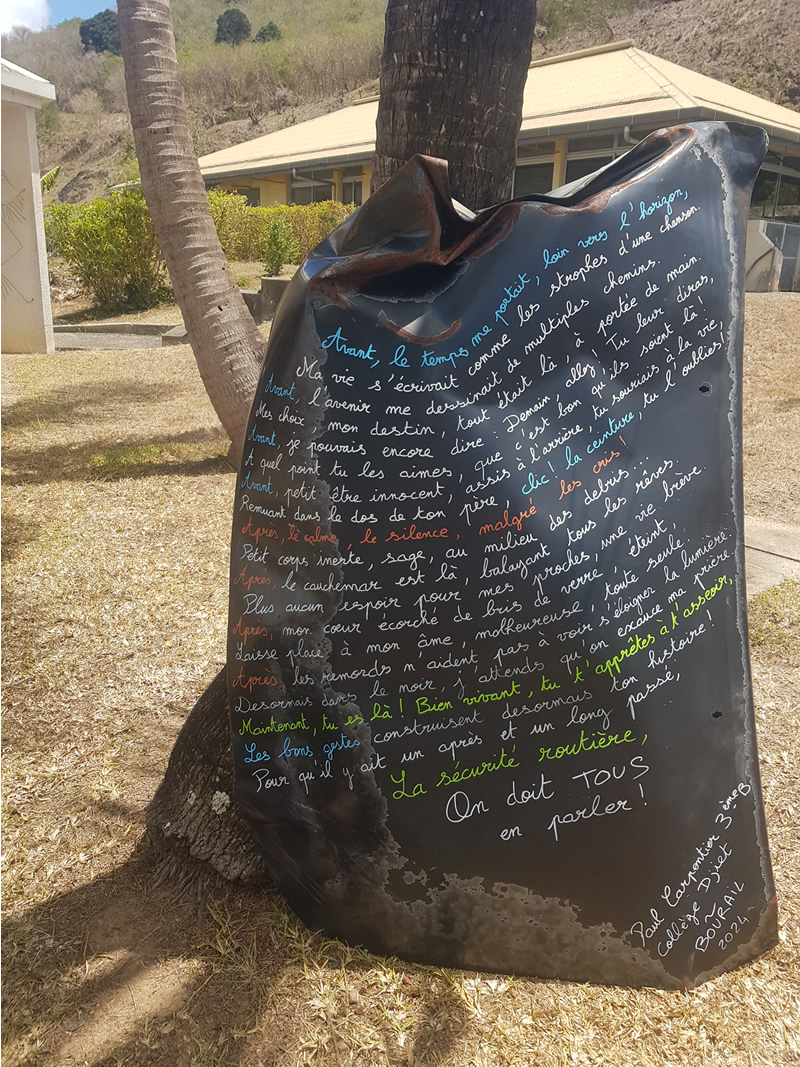 Avant, le temps me portait, loin vers l'horizon,
Ma vie s'écrivait comme les strophes d'une chanson.
Avant, l'avenir me dessinait de multiples chemins.
Mes choix, mon destin, tout était là, à portée de main.
Avant, je pouvais encore dire : Demain, allez! Tu leur diras,
A quel point tu les aimes, que c'est bon qu'ils soient là!
Avant, petit être innocent, assis à l'arrière, tu souriais à la vie,
Remuant dans le dos de ton père, clic! la ceinture, tu l'oublies!
Après, le calme, le silence, malgré les cris!
Petit corps inerte, sage, au milieu des débris...
Après, le cauchemar est là, balayant tous les rêves
Plus aucun espoir pour mes proches, une vie brève.
Après, mon cœur écorché de bris de verre, éteint,
Laisse place à mon âme, malheureuse, toute seule.
Après, les remords n'aident pas à voir s'éloigner la lumière.
Desormais dans le noir, j'attends qu'on exauce ma prière
Maintenant, tu es là! Bien vivant, tu t'apprêtes à t'asseoir,
Les bons gestes construisent desormais ton histoire!
Pour qu'il y ait un après et un long passé,
La sécurité routière,
On doit TOUS
en parler!
Paul Carpentier 3ème B
Collège Djiet
~
BOURAIL
2024